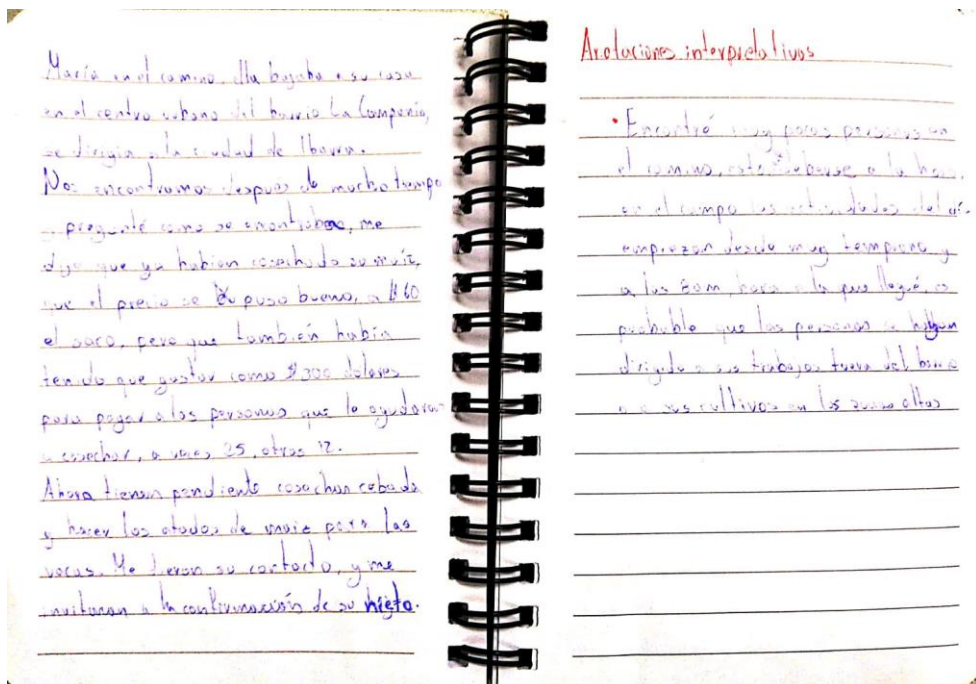 María en el camino, ella bajaba a su casa
en el centro urbano del barrio La Compañía,
se dirigía a la ciudad de Ibarra.
Nos encontramos después de mucho tiempo
pregunté como se encontraba, me
dijo que ya habían cosechado su maíz,
que el precio se puso bueno, a $60
el saco, pero que también había
tenido que gastar como $300 dolares
para pagar a las personas que le ayudaron
a cosechar, a veces 25, otras 12.
Ahora tienen pendiente cosechan cebada
y hacer los atados de maiz para las
vacas. Me dieron su contacto, y me
invitaron a la confirmación de su nieta.
Anotaciones interpretativas
• Encontré muy pocas personas en
el camino, esto debe a la hora,
en el campo las actividades del
empiezan desde muy temprano y
a las 8am, hora a la que llegué, es
probable que las personas se hayan
dirigido a sus trabajos fuera del barrio
o a sus cultivos en las zonas altas